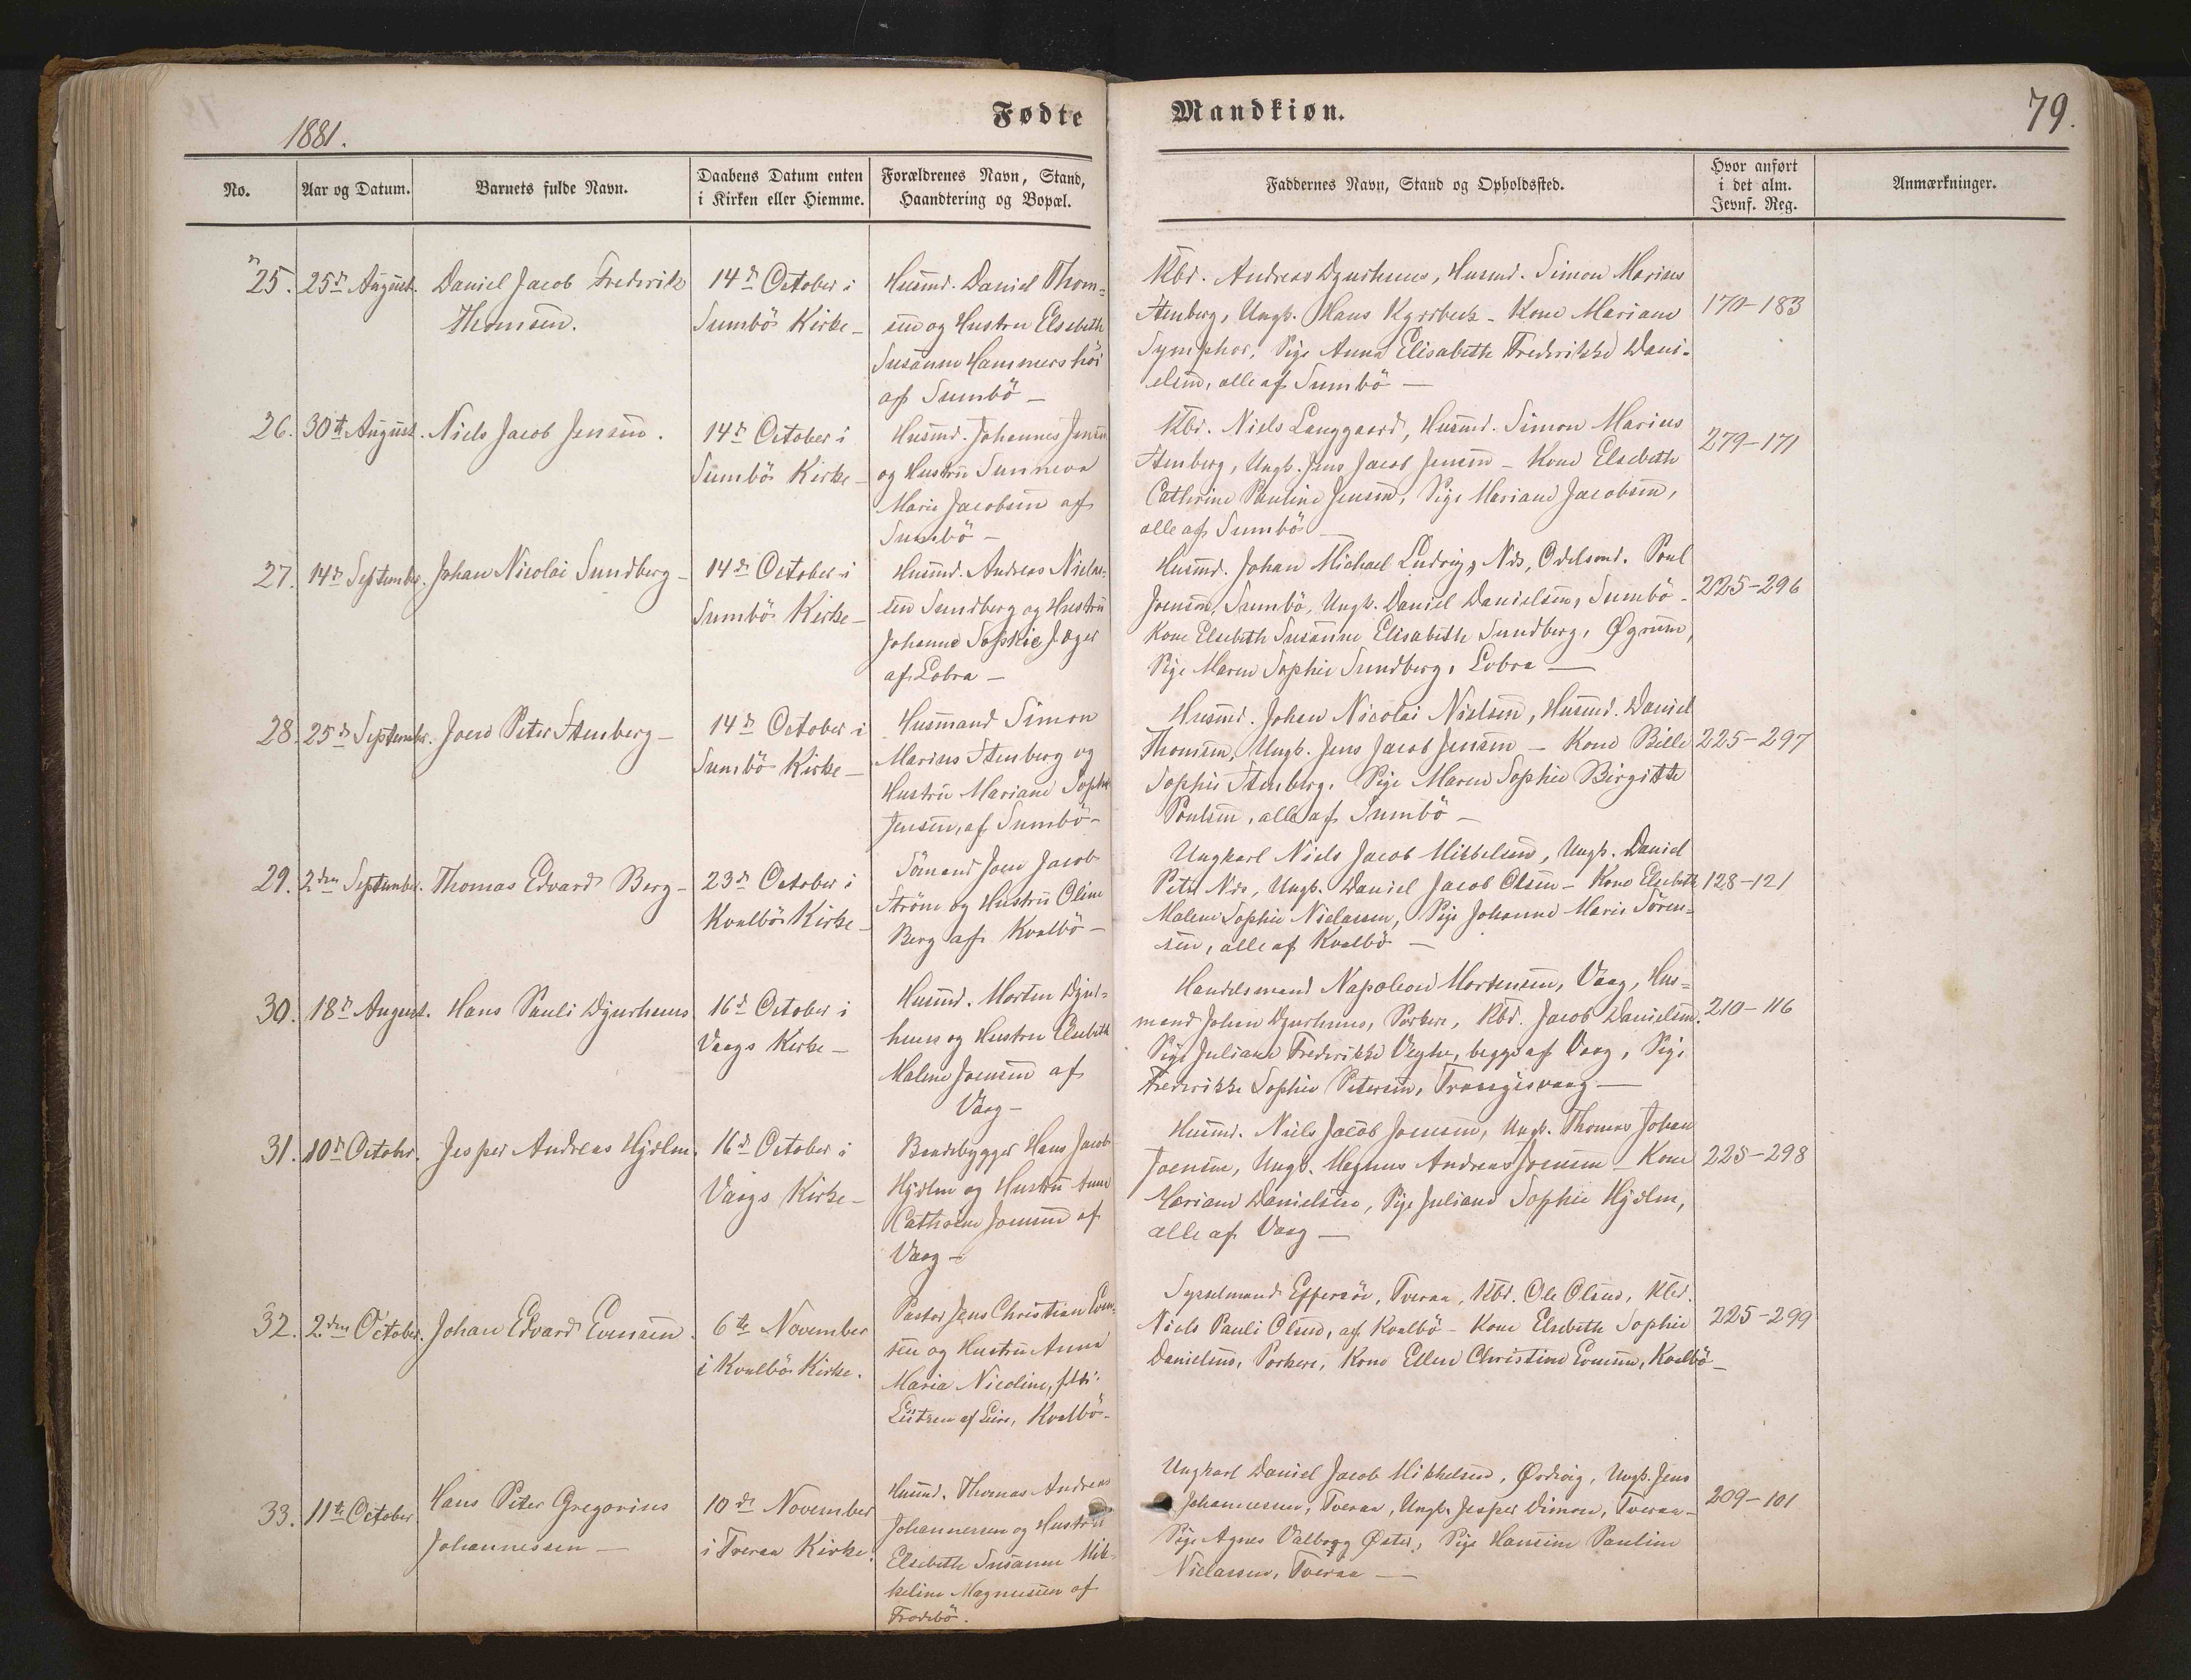 Fødte
Mandkiøn.
79.
1881.
No.
Aar og Datum.
Barnets fulde Navn.
Daabens Datum enten
i Kirken eller Hiemme.
Forældrenes Navn, Stand,
Haandtering og Bopæl.
Faddernes Navn, Stand og Opholdssted.
Hvor anført
i det alm.
Jevnf. Reg.
Anmærkninger.
25.
25d August.
Daniel Jacob Frederik
Thomsen.
14d October i
Sumbö Kirke -
Husmd. Daniel Thom=
sen og Hustru Elsebeth
Susanne Hammershöi
af Sumbö -
Kbd. Andreas Djurhuus, Husmd. Simon Marius
Stenberg, Ungk. Hans Kjærbech - Kone Mariane
Symphor, Pige Anna Elisabeth Frederikke Dani-
elsen, alle af Sumbö -
170-183
26.
30te August.
Niels Jacob Jensen.
14d October i
Sumbö Kirke -
Husmd. Johannes Jensen
og Hustru Sunneva
Marie Jacobsen af
Sumbö -
Kbd. Niels Langgaard, Husmd. Simon Marius
Stenberg, Ungk. Jens Jacob Jensen - Kone Elsebeth
Cathrine Pauline Jensen, Pige Mariane Jacobsen,
alle af Sumbö -
279-171
27.
14d September.
Johan Nicolai Sundberg -
14d October i
Sumbö Kirke -
Husmd. Andreas Niclas-
sen Sundberg og Hustru
Johanne Sophie Jæger
af Lobra -
Husmd. Johan Michael Ludvig, Nds, Odelsmd. Poul
Joensen, Sumbö, Ungk. Daniel Danielsen, Sumbö -
Kone Elsebeth Susanne Elisabeth Sundberg, Øgrum,
Pige Maren Sophie Sundberg, Lobra -
225-296
28.
25d September.
Joen Peter Stenberg -
14d October i
Sumbö Kirke -
Husmand Simon
Marius Stenberg og
Hustru Mariane Sophie
Jensen, af Sumbö -
Husmd. Johan Nicolai Nielsen, Husmd. Daniel
Thomsen, Ungk. Jens Jacob Jensen - Kone Bille
Sophie Stenberg, Pige Maren Sophie Birgitte
Poulsen, alle af Sumbö -
225-297
29.
2den September.
Thomas Edvard Berg -
23d October i
Kvalbö Kirke -
Sömand Joen Jacob
Ström og Hustru Oline
Berg af Kvalbö -
Ungkarl Niels Jacob Mikkelsen, Ungk. Daniel
Peter Nds, Ungk. Daniel Jacob Olsen - Kone Elsebeth
Malene Sophie Niclassen, Pige Johanne Marie Sören=
sen, alle af Kvalbö -
128-121
30.
18d August.
Hans Pauli Djurhuus
16d October i
Vaags Kirke -
Husmd. Morten Djur-
huus og Hustru Elsebeth
Malene Joensen af
Vaag -
Handelsmand Napoleon Mortensen, Vaag, Hus=
mand Johan Djurhuus, Porkere, Kbd. Jacob Danielsen.
Pige Juliane Frederikke Vegke, begge af Vaag, Pige
Frederikke Sophie Petersen, Trangisvaag -
210-116
31.
10d October.
Jesper Andreas Hjelm.
16d October i
Vaags Kirke -
Baadebygger Hans Jacob
Hjelm og Hustru Anne
Cathrine Joensen af
Vaag -
Husmd. Niels Jacob Joensen, Ungk. Thomas Johan
Joensen, Ungk. Magnus Andreas Joensen - Kone
Mariane Danielsen, Pige Juliane Sophie Hjelm,
alle af Vaag -
225-298
32.
2den October.
Johan Edvard Evensen.
6te November
i Kvalbö Kirke.
Pastor Jens Christian Even-
sen og Hustru Anna
Maria Nicoline,
Lützen af Kvalbö -
Sysselmand Effersöe, Tveraa, Kbd. Ole Olsen, Kbd.
Niels Pauli Olsen, af Kvalbö - Kone Elsebeth Sophie
Danielsen, Porkere, Kone Ellen Christine Evensen, Kvalbö -
225-299
33.
11te October
Hans Peter Gregorius
Johannessen -
10de November
i Tveraa Kirke.
Husmd. Thomas Andreas
Johannessen og Hustru
Elsebeth Susanne Mik-
keline Magnussen af
Frodebö.
Ungkarl Daniel Jacob Mikkelsen, Ørdevig, Ungk. Jens
Johannessen, Tveraa, Ungk. Jesper Dimon, Tveraa -
Pige Agnes Valborg Øster, Pige Hansine Pauline
Niclassen, Tveraa -
209-101